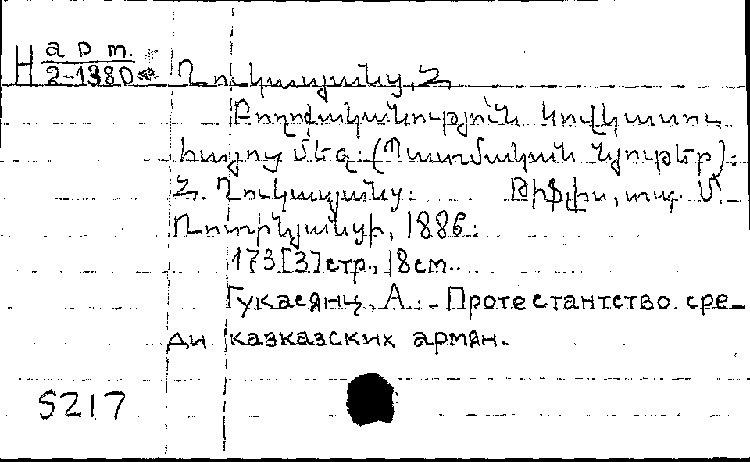 H арт.
2-1380
Ղուկասյանց, Հ
Բողոքականություն Կովկասու
հայոց մեզ: (Պատմական նյութեր).
Հ. Ղուկասյանց: Թիֆլիս, տպ. Մ.
Ռոտինյանցի, 1886:
173[3]стр., 18см.
Гукасянц, А. Протестантство сре-
ди кавказских армян.
5217